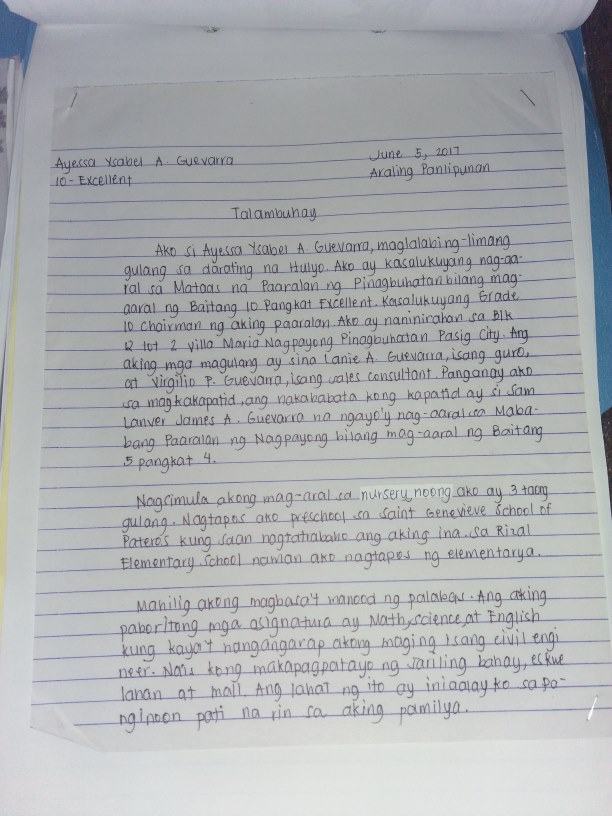 Ayessa Ysabel A. Guevarra
June 5, 2017
10 - Excellent
Araling Panlipunan
Talambuhay
Ako si Ayessa Ysabel A. Guevarra, maglalabing-limang
gulang sa darating na Hulyo. Ako ay kasalukuyang nag-aa-
ral sa Mataas na Paaralan ng Pinagbuhatan bilang mag-
aaral ng Baitang 10 Pangkat Excellent. Kasalukuyang Grade
10 chairman ng aking paaralan. Ako ay naninirahan sa Blk
12 lot 2 Villa Maria Nagpayong Pinagbuhatan Pasig City. Ang
aking mga magulang ay sina Lanie A. Guevarra, isang guro,
at Virgilio P. Guevarra, isang sales consultant. Panganay ako
sa magkakapatid, ang nakababata kong kapatid ay si Sam
Lanver James A. Guevarra na ngayo'y nag-aaral sa Maba-
bang Paaralan ng Nagpayong bilang mag-aaral ng Baitang
5 pangkat 4.
Nagsimula akong mag-aral sa nursery, noong ako ay 3 taong
gulang. Nagtapos ako preschool sa Saint Genevieve School of
Pateros kung saan nagtatrabaho ang aking ina. Sa Rizal
Elementary School naman ako nagtapos ng elementarya.
Mahilig akong magbasa't manood ng palabas. Ang aking
paboritong mga asignatura ay Math, science, at English
kung kaya't nangangarap akong maging isang civil engi
neer. Nais kong makapagpatayo ng sariling bahay, eskwe
lahan at mall. Ang lahat ng ito ay iniaalay ko sa pa-
nginoon pati na rin sa aking pamilya.